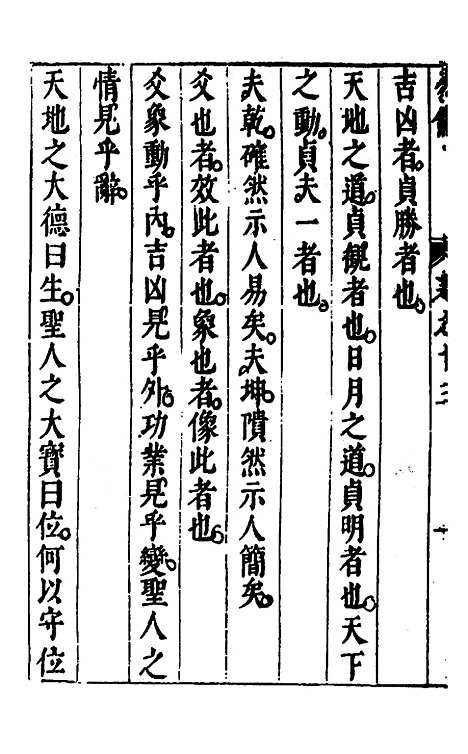 吉凶者。貞勝者也。
天地之道。貞觀者也。日月之道。貞明者也。天下
之動。貞夫一者也。
夫乾。確然示人易矣。夫坤。隤然示人簡矣。
爻也者。效此者也。象也者。像此者也。
爻象動乎內。吉凶見乎外。功業見乎變。聖人之
情見乎辭。
天地之大德曰生。聖人之大寶曰位。何以守位